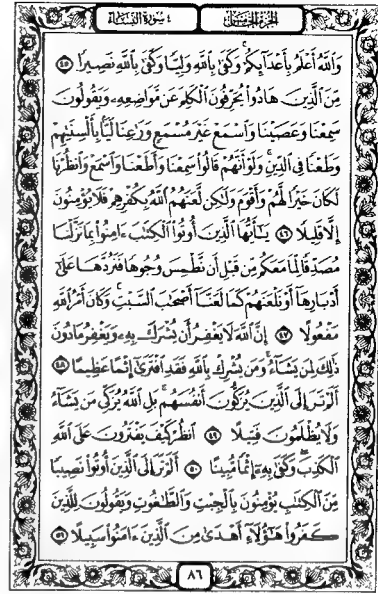 الجزء الخامس
٤ سورة النساء
وَاللَّهُ أَعْلَمُ بِأَعْدَائِكُمْ ۚ وَكَفَىٰ بِاللَّهِ وَلِيًّا وَكَفَىٰ بِاللَّهِ نَصِيرًا ﴿٤٥﴾
مِّنَ الَّذِينَ هَادُوا يُحَرِّفُونَ الْكَلِمَ عَن مَّوَاضِعِهِ وَيَقُولُونَ
سَمِعْنَا وَعَصَيْنَا وَاسْمَعْ غَيْرَ مُسْمَعٍ وَرَاعِنَا لَيًّا بِأَلْسِنَتِهِمْ
وَطَعْنًا فِي الدِّينِ ۚ وَلَوْ أَنَّهُمْ قَالُوا سَمِعْنَا وَأَطَعْنَا وَاسْمَعْ وَانظُرْنَا
لَكَانَ خَيْرًا لَّهُمْ وَأَقْوَمَ وَلَٰكِن لَّعَنَهُمُ اللَّهُ بِكُفْرِهِمْ فَلَا يُؤْمِنُونَ
إِلَّا قَلِيلًا ﴿٤٦﴾ يَا أَيُّهَا الَّذِينَ أُوتُوا الْكِتَابَ آمِنُوا بِمَا نَزَّلْنَا
مُصَدِّقًا لِّمَا مَعَكُم مِّن قَبْلِ أَن نَّطْمِسَ وُجُوهًا فَنَرُدَّهَا عَلَىٰ
أَدْبَارِهَا أَوْ نَلْعَنَهُمْ كَمَا لَعَنَّا أَصْحَابَ السَّبْتِ ۚ وَكَانَ أَمْرُ اللَّهِ
مَفْعُولًا ﴿٤٧﴾ إِنَّ اللَّهَ لَا يَغْفِرُ أَن يُشْرَكَ بِهِ وَيَغْفِرُ مَا دُونَ
ذَٰلِكَ لِمَن يَشَاءُ ۚ وَمَن يُشْرِكْ بِاللَّهِ فَقَدِ افْتَرَىٰ إِثْمًا عَظِيمًا ﴿٤٨﴾
أَلَمْ تَرَ إِلَى الَّذِينَ يُزَكُّونَ أَنفُسَهُم ۚ بَلِ اللَّهُ يُزَكِّي مَن يَشَاءُ
وَلَا يُظْلَمُونَ فَتِيلًا ﴿٤٩﴾ انظُرْ كَيْفَ يَفْتَرُونَ عَلَى اللَّهِ
الْكَذِبَ ۖ وَكَفَىٰ بِهِ إِثْمًا مُّبِينًا ﴿٥٠﴾ أَلَمْ تَرَ إِلَى الَّذِينَ أُوتُوا نَصِيبًا
مِّنَ الْكِتَابِ يُؤْمِنُونَ بِالْجِبْتِ وَالطَّاغُوتِ وَيَقُولُونَ لِلَّذِينَ
كَفَرُوا هَٰؤُلَاءِ أَهْدَىٰ مِنَ الَّذِينَ آمَنُوا سَبِيلًا ﴿٥١﴾
٨٦